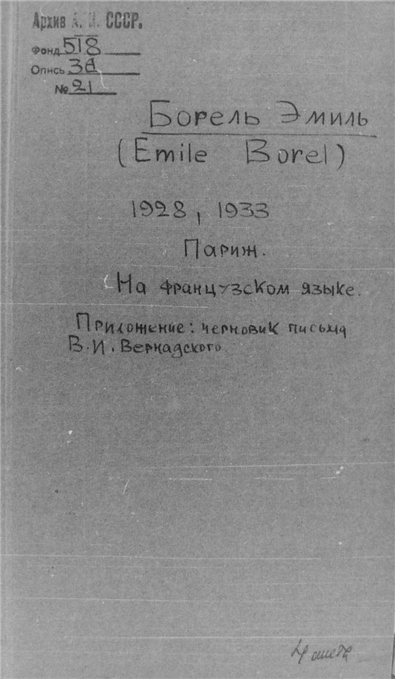 Архив А. Н. СССР.
Фонд 518
Опись 3а
№ 21
Борель Эмиль
(Emile Borel)
1928, 1933
Париж.
На французском языке.
Приложение: черновик письма
В.И. Вернадского.
4